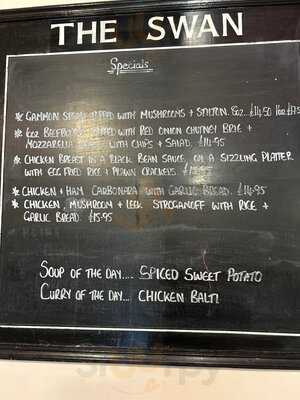 THE SWAN
Specials
* GAMMON STEAK TOPPED WITH MUSHROOMS + STILTON. 8oz... £14.50 16oz
* 6oz BEEFBURGER TOPPED WITH RED ONION CHUTNEY BRIE +
MOZZARELLA WITH CHIPS + SALAD. £14.95
* CHICKEN BREAST IN A BLACK BEAN SAUCE, ON A SIZZLING PLATTER
WITH EGG FRIED RICE + PRAWN CRACKERS.
* CHICKEN + HAM CARBONARA WITH GARLIC BREAD. £14.95
* CHICKEN, MUSHROOM + LEEK STROGANOFF WITH RICE +
GARLIC BREAD. £15.95
SOUP OF THE DAY.... SPICED SWEET POTATO
CURRY OF THE DAY... CHICKEN BALTI